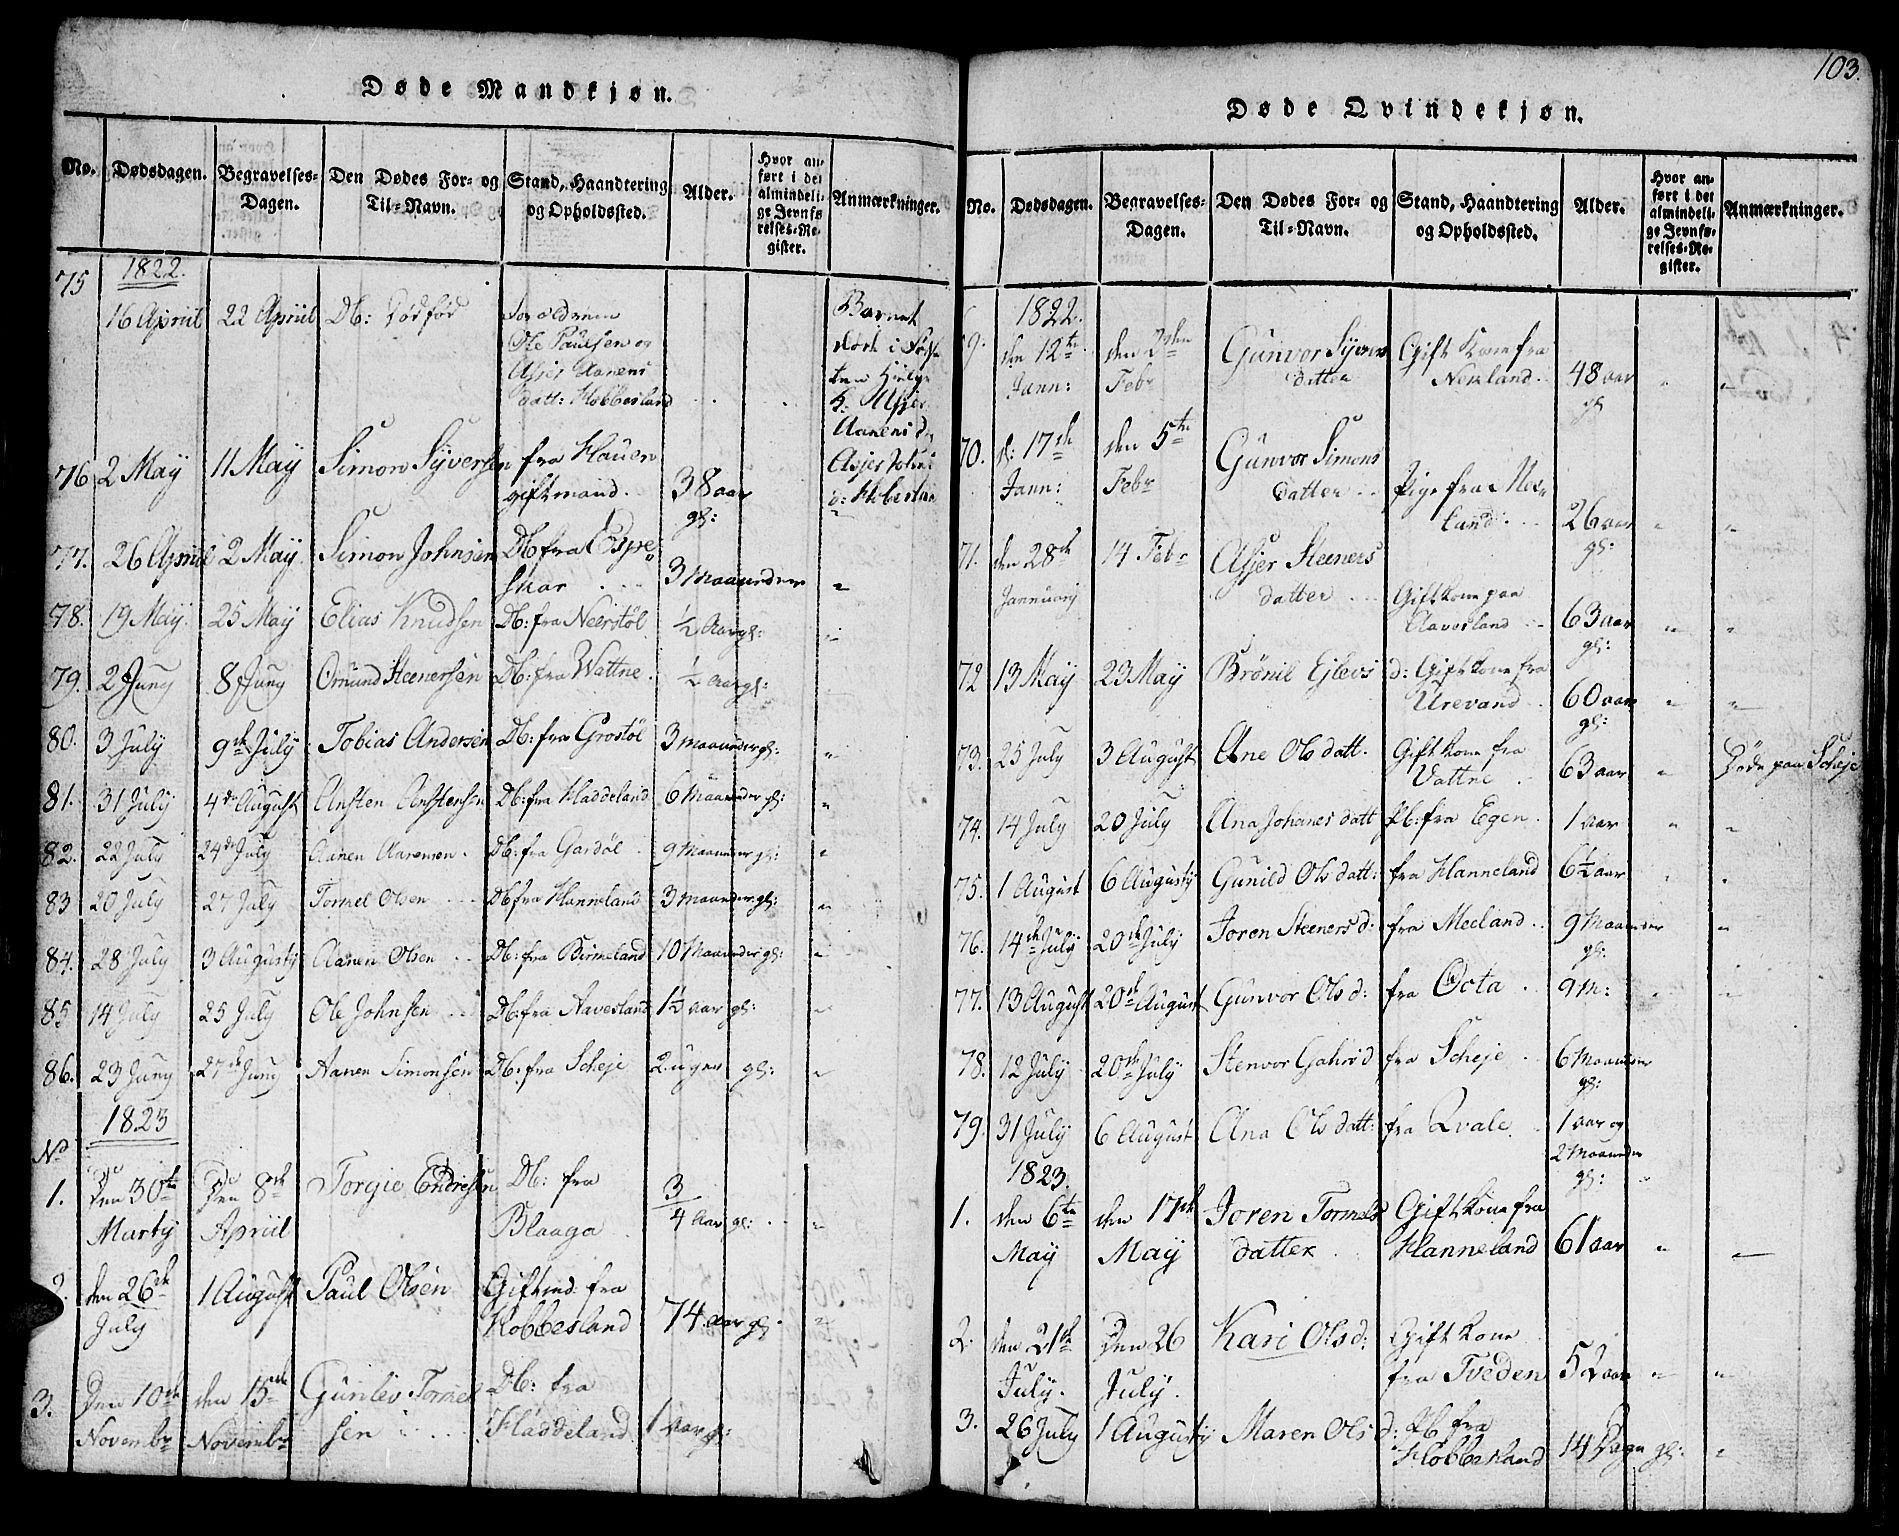 Døde Mandkjøn.
No. Dødsdagen. Begravelses-Dagen. Den Dødes For- og Til-Navn. Stand, Haandtering og Opholdssted. Alder. Hvor anført i det almindelige Jevnførelses-Register. Anmærkninger.
1822.
75 16 Apriil 22 Apriil Db: Dødfød Forældrene
Ole Paulsen og
Asjer Aanens
datt: Kobbesland
Barnet
døde i
76 2 May 11 May Simon Syversen fra Hauen
giftmand. 38 aar
gl:
77. 26 Apriil 2 May Simon Johnsen Db fra Espe
skar 3 Maaneder "
78. 19 May. 25 May Elias Knudsen Db: fra Neerstøl ½ Aar gl: "
79. 2 Juny 8 Juny Omund Steenersen Db: fra Wattne. ½ aar gl:
80. 3 July 9de July Tobias Andersen Db: fra Grostøl 3 maaneder gl: "
81. 31 July 4de August Ansten Anstensen Db: fra Haddeland 6 Maaneder gl: "
82. 22 July 24de July Aanen Aanensen. Db: fra Gardøl. 9 Maaneder gl: "
83 20 July 27 July Tormel Olsen Db fra Hanneland 3 Maaneder gl: "
84. 28 July 3 Augusty Aanen Olsen Db: fra Birkeland 10 Maaneder gl: "
85 14 July 25 July Ole Johnsen Db: fra Aavesland 1½ aar gl: "
86. 23 Juny 27de Juny Aanen Simonsen Db: fra Scheje 2 uger gl: "
1823
No
1. Den 30te Den 8de Torgie Endresen Db: fra 3/4 Aar gl: "
Marty Apriil Blaaga
2. den 26de 1 August Paul Olsen Giftmd: fra
July Kobbesland 74 aar gl. "
3. Den 10de den 15de Gunlev Tormel Db: fra
Novembr Novembr sen Haddeland 1 aar gl:
103.
Døde Qvindekjøn.
No. Dødsdagen. Begravelses-Dagen. Den Dødes For- og Til-Navn. Stand, Haandtering og Opholdssted. Alder. Hvor anført i det almindelige Jevnførelses-Register. Anmærkninger.
1822.
69. den 12te den 2den Gunvor Syvers Gift Kone fra
Jann: Febr datter 48 aar " "
gl
70. d: 17de den 5te Gunvor Simons
Jann: Febr datter Pige fra Nes
land 26 aar " "
gl:
71. den 28de 14 Febr Asjer Steeners
Jannuary datter Giftkone paa
Aavesland 63 aar " "
gl:
72 13 May 23 May Brønil Ejlevs d: Giftkone fra
Urevand 60 aar " "
gl:
73. 25 July 3 August Ane Ols datt. Gift kone fra
Vattne 63 aar " Døde paa Scheje
74. 14 July 20 July Ana Johanes datt Pb: fra Egen. 1 aar " "
75. 1 August 6 Augusty Gunild Ols datt: fra Hanneland 6½ aar " "
76. 14de July 20de July Joren Steeners d: fra Meeland 9 Maaneder "
gl:
77. 13 August 20de August Gunvor Ols d: fra Øcta 9 M: " "
78. 12 July 20de July Stenvor d fra Scheje 6 Maaneder
gl:
79. 31 July 6 August Ana Ols datt: fra Qvale 1 aar og
2 Maaneder
gl: "
1823.
1. den 6te den 17de Joren Tormels Gift kone fra
May May datter Hanneland 61 aar " "
2. den 21de Den 26 Kari Ols d: Gift kone
July. July. fra Tveden 52 aar " "
3. 26 July 1 Augusty Maren Ols d: Pb fra
Kobbesland 14 Dage gl: "